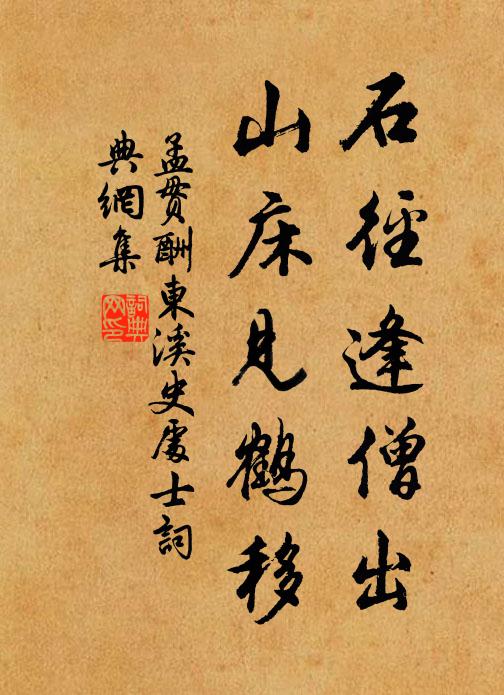 石徑逢僧出
山床見鶴移
孟貫酬東溪史處士詞
典網集
詞典網印